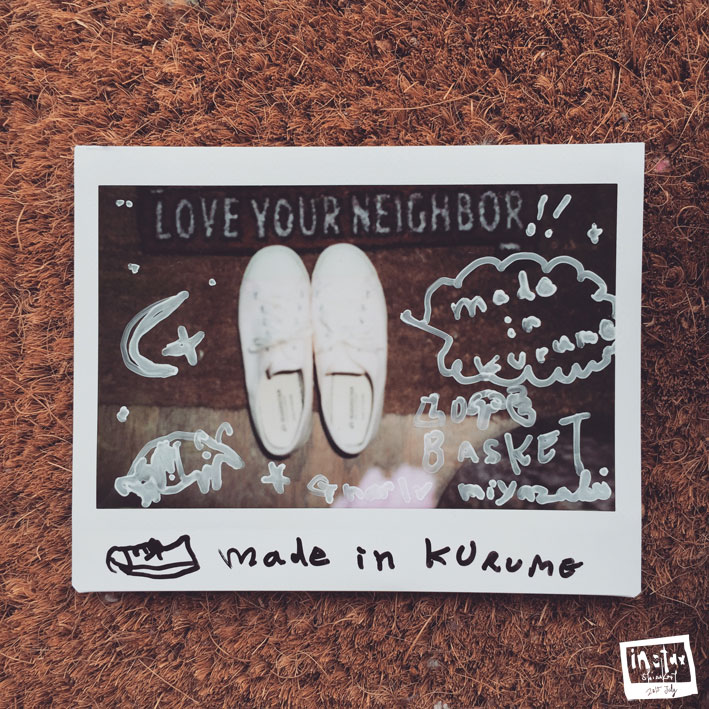 LOVE YOUR NEIGHBOR!!
made
in
Kurume
BASKET
miyazaki
made in KURUME
instax
20th July